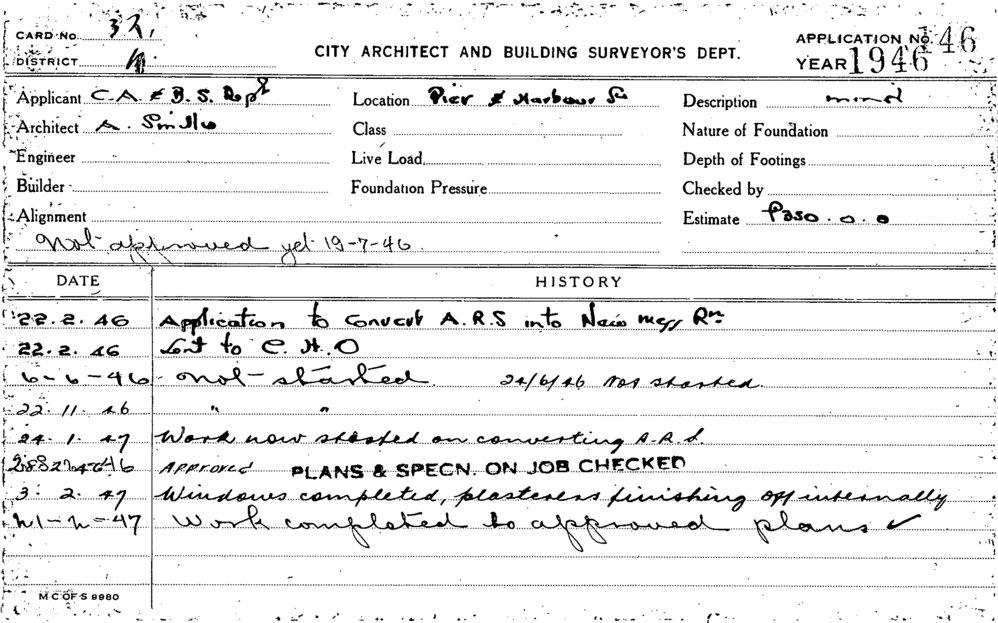 CARD No. 32.
APPLICATION No. 146
DISTRICT
CITY ARCHITECT AND BUILDING SURVEYOR'S DEPT.
YEAR 1946
Applicant C.A. & B.S. Dept
Location Pier & Harbour St
Description
Architect A. Smillie
Class
Nature of Foundation
Engineer
Live Load
Depth of Footings
Builder
Foundation Pressure
Checked by
Alignment
Estimate £250.0.0
Not approved yet 19-7-46
DATE HISTORY
22.2.46 Application to Convert A.R.S into New Mess Rm
22.2.46 Sent to C.H.O
6-6-46 Not started. 24/6/46 Not started.
22.11.46 " "
24.1.47 Work now started on converting A.R.S.
Approved PLANS & SPECN. ON JOB CHECKED
3.2.47 Windows completed, plasterers finishing off internally
21-2-47 Work completed to approved plans ✓
M C OF S 9980